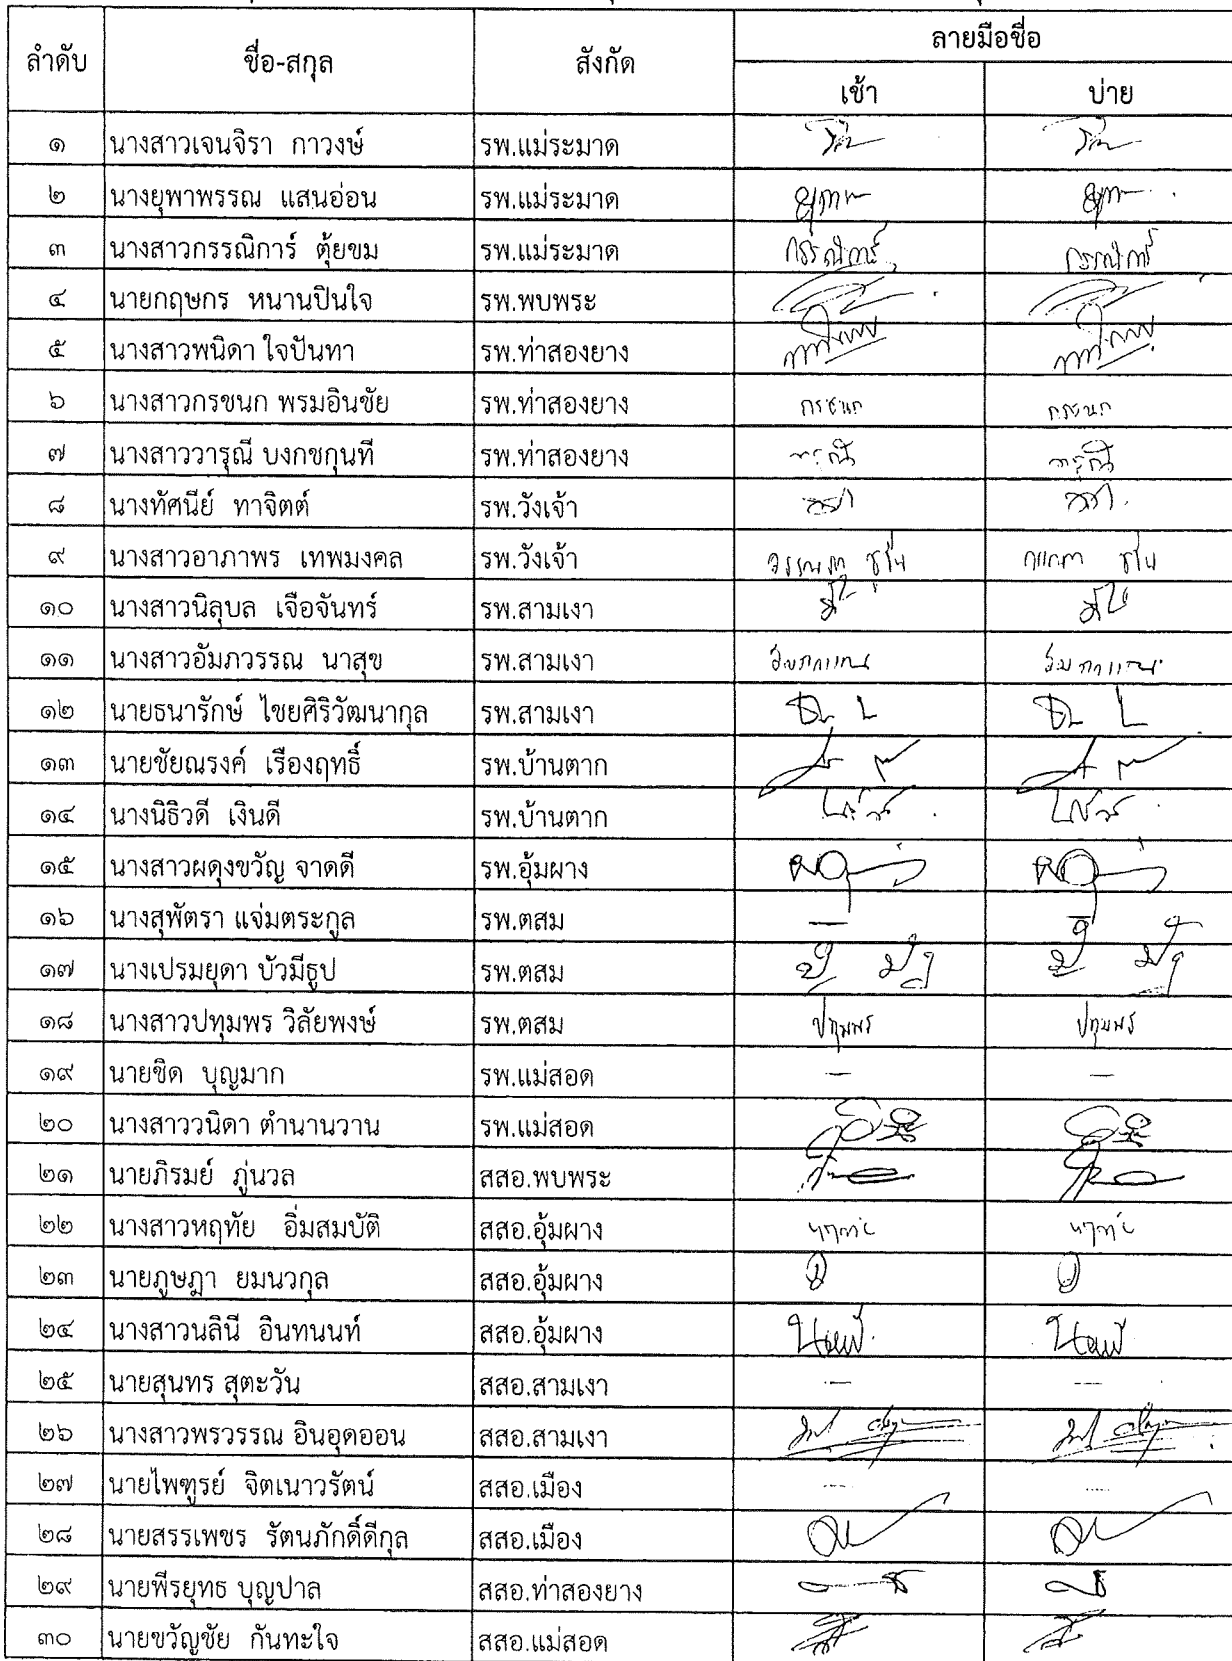 ลำดับ ชื่อ-สกุล สังกัด ลายมือชื่อ
เช้า บ่าย
๑ นางสาวเจนจิรา กาวงษ์ รพ.แม่ระมาด
๒ นางยุพาพรรณ แสนอ่อน รพ.แม่ระมาด
๓ นางสาวกรรณิการ์ ตุ้ยขม รพ.แม่ระมาด กรรณิการ์ กรรณิการ์
๔ นายกฤษกร หนานปินใจ รพ.พบพระ
๕ นางสาวพนิดา ใจปันทา รพ.ท่าสองยาง
๖ นางสาวกรชนก พรมอินชัย รพ.ท่าสองยาง กรชนก กรชนก
๗ นางสาววารุณี บงกชกุนที รพ.ท่าสองยาง วารุณี วารุณี
๘ นางทัศนีย์ ทาจิตต์ รพ.วังเจ้า
๙ นางสาวอาภาพร เทพมงคล รพ.วังเจ้า
๑๐ นางสาวนิลุบล เจือจันทร์ รพ.สามเงา
๑๑ นางสาวอัมภวรรณ นาสุข รพ.สามเงา อัมภวรรณ อัมภวรรณ
๑๒ นายธนารักษ์ ไชยศิริวัฒนากุล รพ.สามเงา
๑๓ นายชัยณรงค์ เรืองฤทธิ์ รพ.บ้านตาก
๑๔ นางนิธิวดี เงินดี รพ.บ้านตาก
๑๕ นางสาวผดุงขวัญ จาดดี รพ.อุ้มผาง
๑๖ นางสุพัตรา แจ่มตระกูล รพ.ตสม — —
๑๗ นางเปรมยุดา บัวมีธูป รพ.ตสม
๑๘ นางสาวปทุมพร วิลัยพงษ์ รพ.ตสม ปทุมพร ปทุมพร
๑๙ นายชิด บุญมาก รพ.แม่สอด — —
๒๐ นางสาววนิดา ตำนานวาน รพ.แม่สอด
๒๑ นายภิรมย์ ภู่นวล สสอ.พบพระ
๒๒ นางสาวหฤทัย อิ่มสมบัติ สสอ.อุ้มผาง หฤทัย หฤทัย
๒๓ นายภูษฎา ยมนวกุล สสอ.อุ้มผาง
๒๔ นางสาวนลินี อินทนนท์ สสอ.อุ้มผาง
๒๕ นายสุนทร สุตะวัน สสอ.สามเงา — —
๒๖ นางสาวพรวรรณ อินอุดออน สสอ.สามเงา
๒๗ นายไพฑูรย์ จิตเนาวรัตน์ สสอ.เมือง — —
๒๘ นายสรรเพชร รัตนภักดิ์ดีกุล สสอ.เมือง
๒๙ นายพีรยุทธ บุญปาล สสอ.ท่าสองยาง
๓๐ นายขวัญชัย กันทะใจ สสอ.แม่สอด